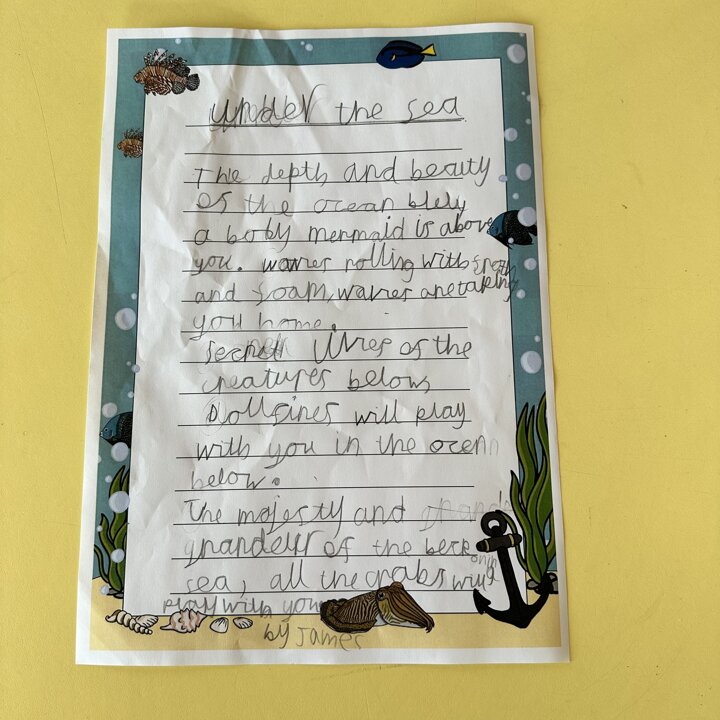 under the sea
The depth and beauty
of the ocean blely
a body mermaid is above
you. waves rolling with froth
and foam, waves are taking
you home.
Secret lives of the
creatures below,
Dollfines will play
with you in the ocenn
below.
The majesty and
grandeur of the beckonin
sea, all the crabs will
play with you
by James